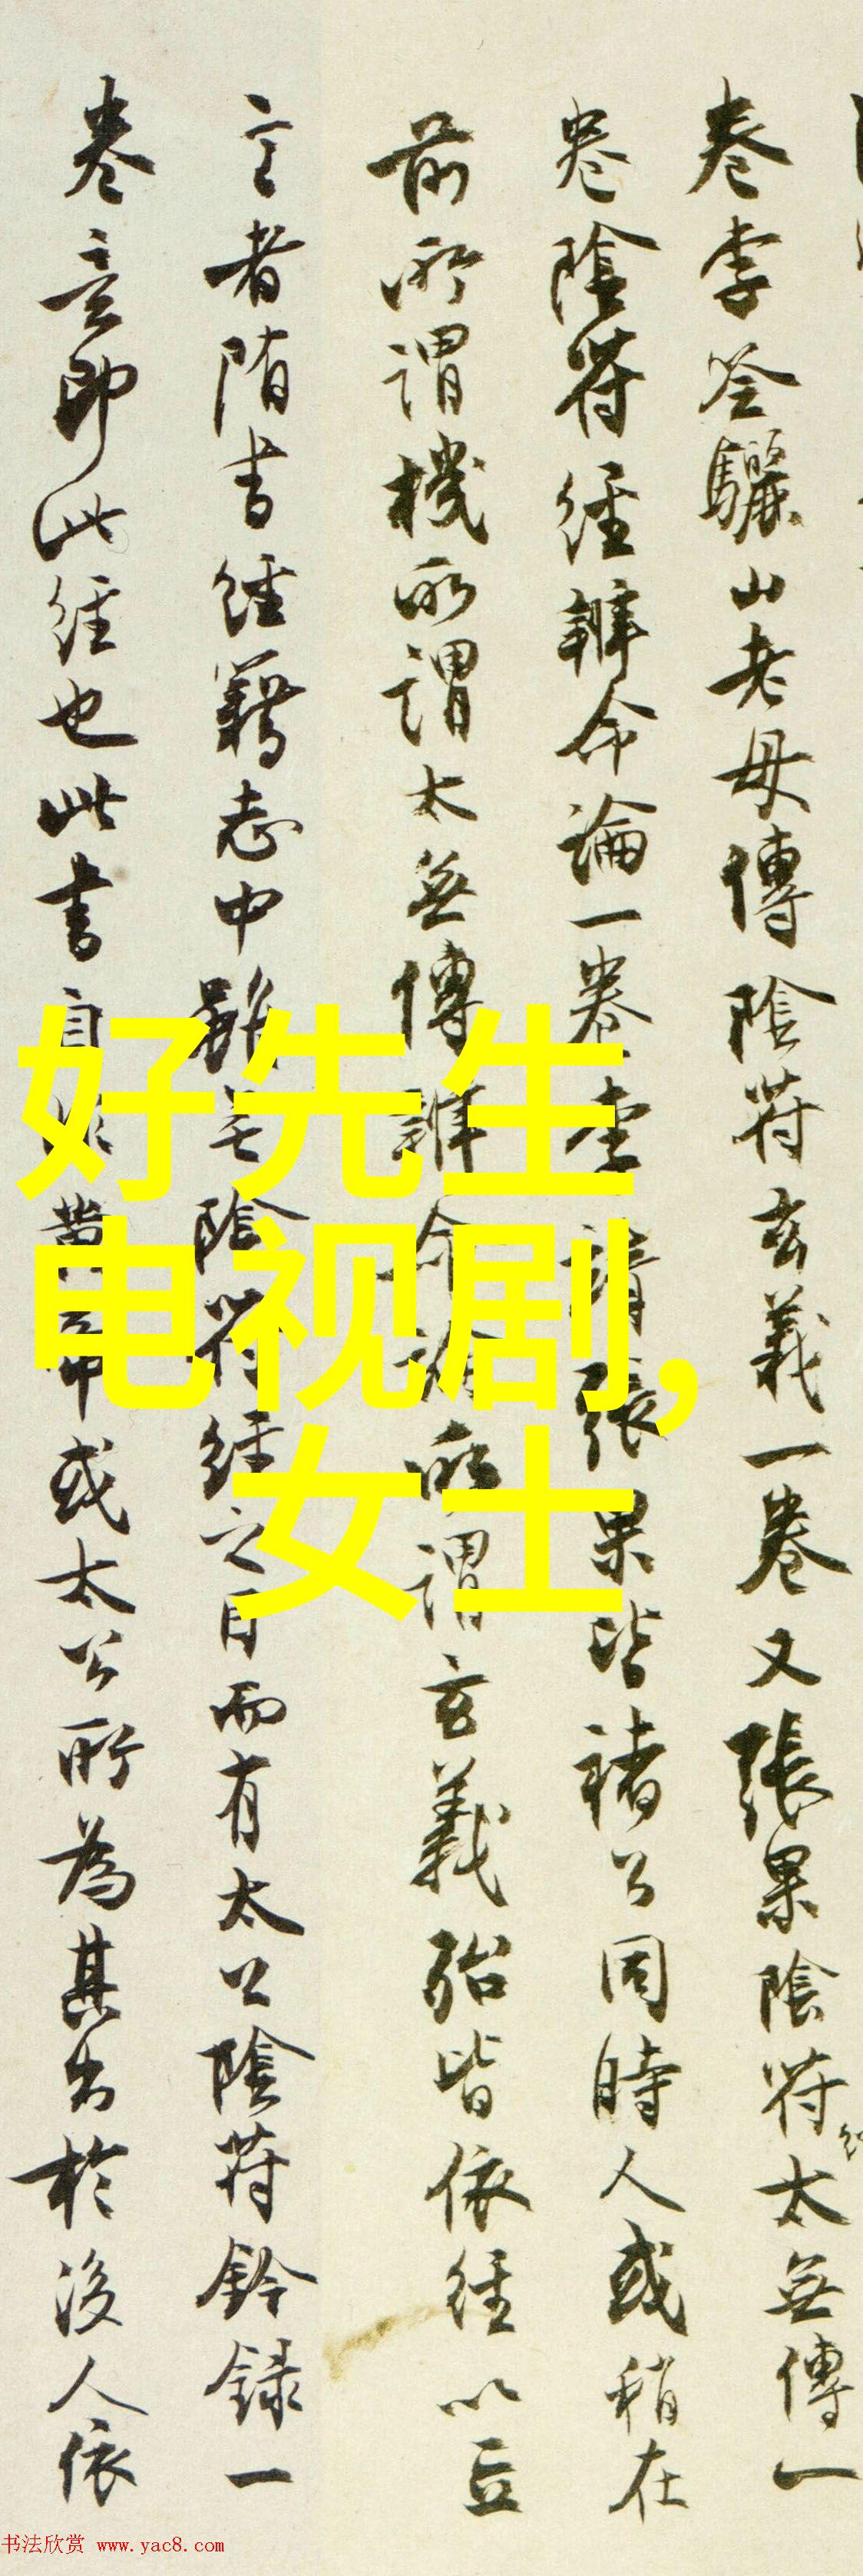 卷李筌驪山老母傳陰符玄義一卷又張果陰符太無傳一
卷陰符經辨命論一卷李 張果皆褚公同時人或稍在
前所謂機所謂太無傳辨命論所謂玄義殆皆依經以立
言者隋書經籍志中雖無陰符經之目而有太公陰符鈐録一
卷意即此經也此書自 黄帝或太公所為其出於後人依
好先生
电视剧,
女士
书法欣赏 www.yac8.com